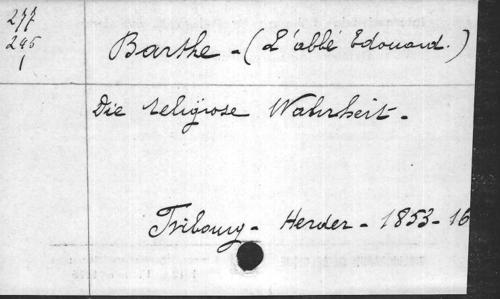 277
246
1
Barthe - (L'abbé Edouard.)
Die religiose Wahrheit -
Fribourg - Herder - 1853 - 16